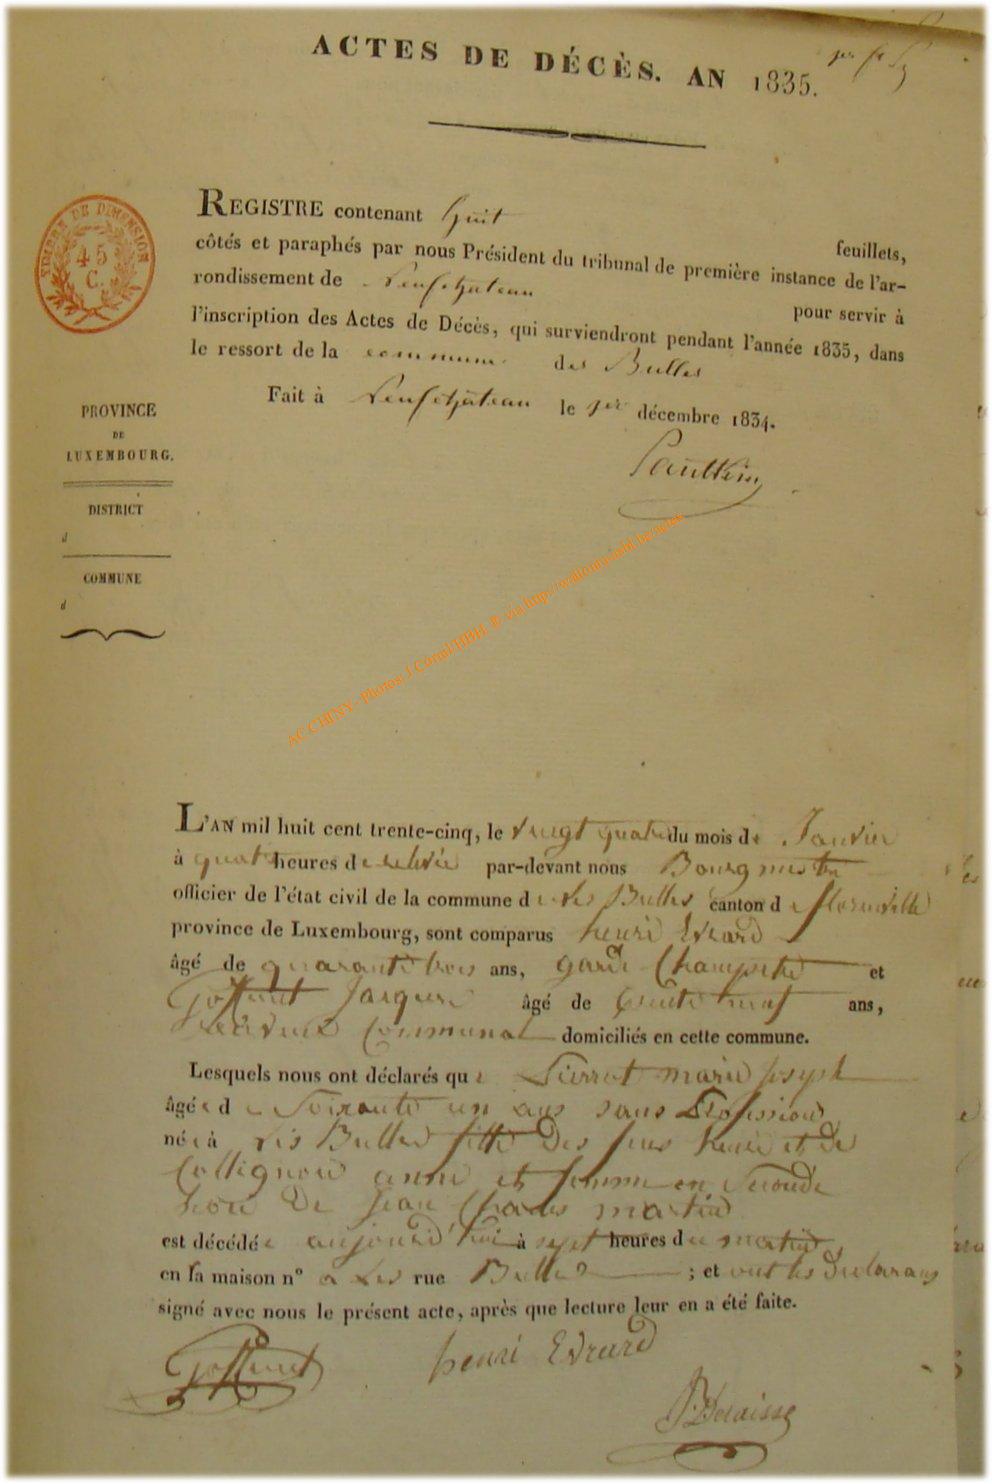 ACTES DE DÉCÈS. AN 1835.
REGISTRE contenant huit feuillets,
côtés et paraphés par nous Président du tribunal de première instance de l'ar-
rondissement de Neufchâteau pour servir à
l'inscription des Actes de Décès, qui surviendront pendant l'année 1835, dans
le ressort de la commune des Bulles
Fait à Neufchâteau le 1er décembre 1834.
TIMBRE DE DIMENSION
45
C.
PROVINCE
DE
LUXEMBOURG.
DISTRICT
d
COMMUNE
d
AC CHINY- Photos J Cornil HBH © via
L'AN mil huit cent trente-cinq, le vingt quatre du mois de Janvier
à quatre heures de relevée par-devant nous Bourgmestre
officier de l'état civil de la commune de Les Bulles canton de florenville
province de Luxembourg, sont comparus henri Evrard
âgé de quarante trois ans, garde Champetre et
Goffinet Jacques âgé de trente neuf ans,
Receveur Communal domiciliés en cette commune.
Lesquels nous ont déclarés que Pierrot marie joseph
âgée de Soixante un ans sans Profession
née à Les Bulles fille des feus henri et de
Collignon anne et femme en seconde
de Jean Charles martin
est décédée aujourd'hui à sept heures du matin
en sa maison n° a Les rue Bulles ; et ont les declarans
signé avec nous le présent acte, après que lecture leur en a été faite.
Goffinet henri Evrard